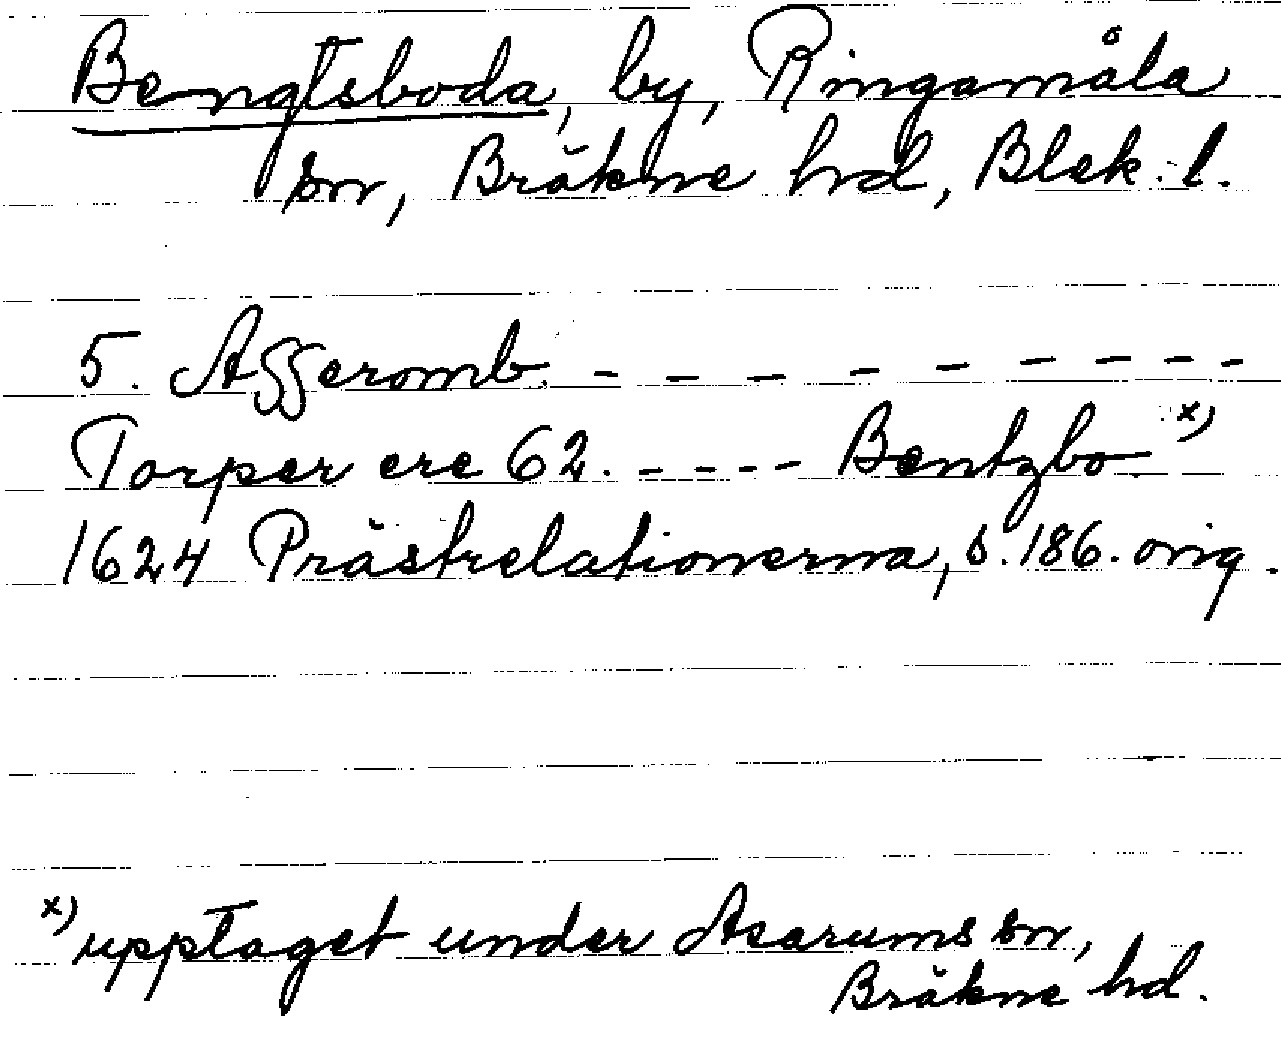 Bengtsboda, by, Ringamåla
sn, Bräkne hd, Blek. l.
5. Affseromb. - - - - - - - - -
Torper ere 62. - - - - - Bentzbo x)
1624 Prästrelationerna, s. 186. orig.
x) upptaget under Asarums sn,
Bräkne hd.